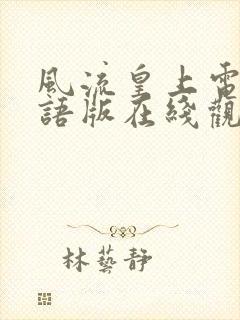 風流皇上電
語版在綫觀
林藝靜